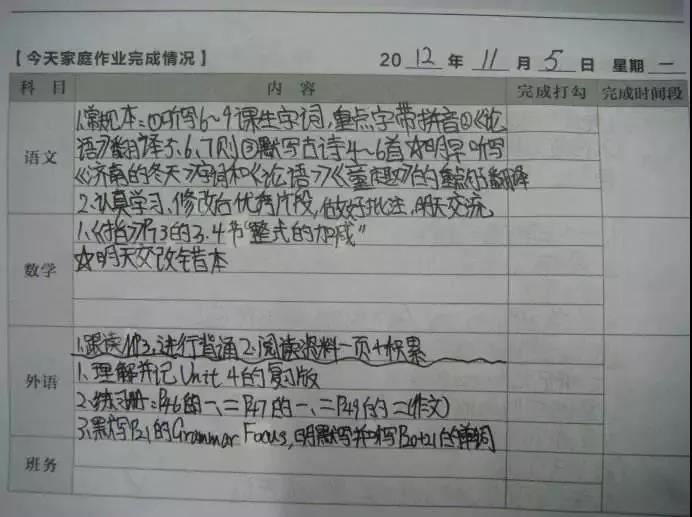 【今天家庭作业完成情况】 2012年11月5日 星期一
科目 内容 完成打勾 完成时间段
语文
1.常规本:①听写6~9课生字词,重点字带拼音②《论
语》翻译5.6.7则③默写古诗4~6首☆明早听写
《济南的冬天》字词和《论语》《童趣》的重点句翻译
2.认真学习、修改台优秀片段,做好批注,明天交流
数学
1.P73的3.4节"整式的加减"
☆明天交改错本
外语
1.跟读MP3,进行背诵2.阅读资料一页+积累
1.理解并记Unit 4的复习版
2.练习册:P46的一、二P47的一、二P49的二(作文)
3.默写P21的Grammar Focus,明默写并听写P20+21的单词
班务